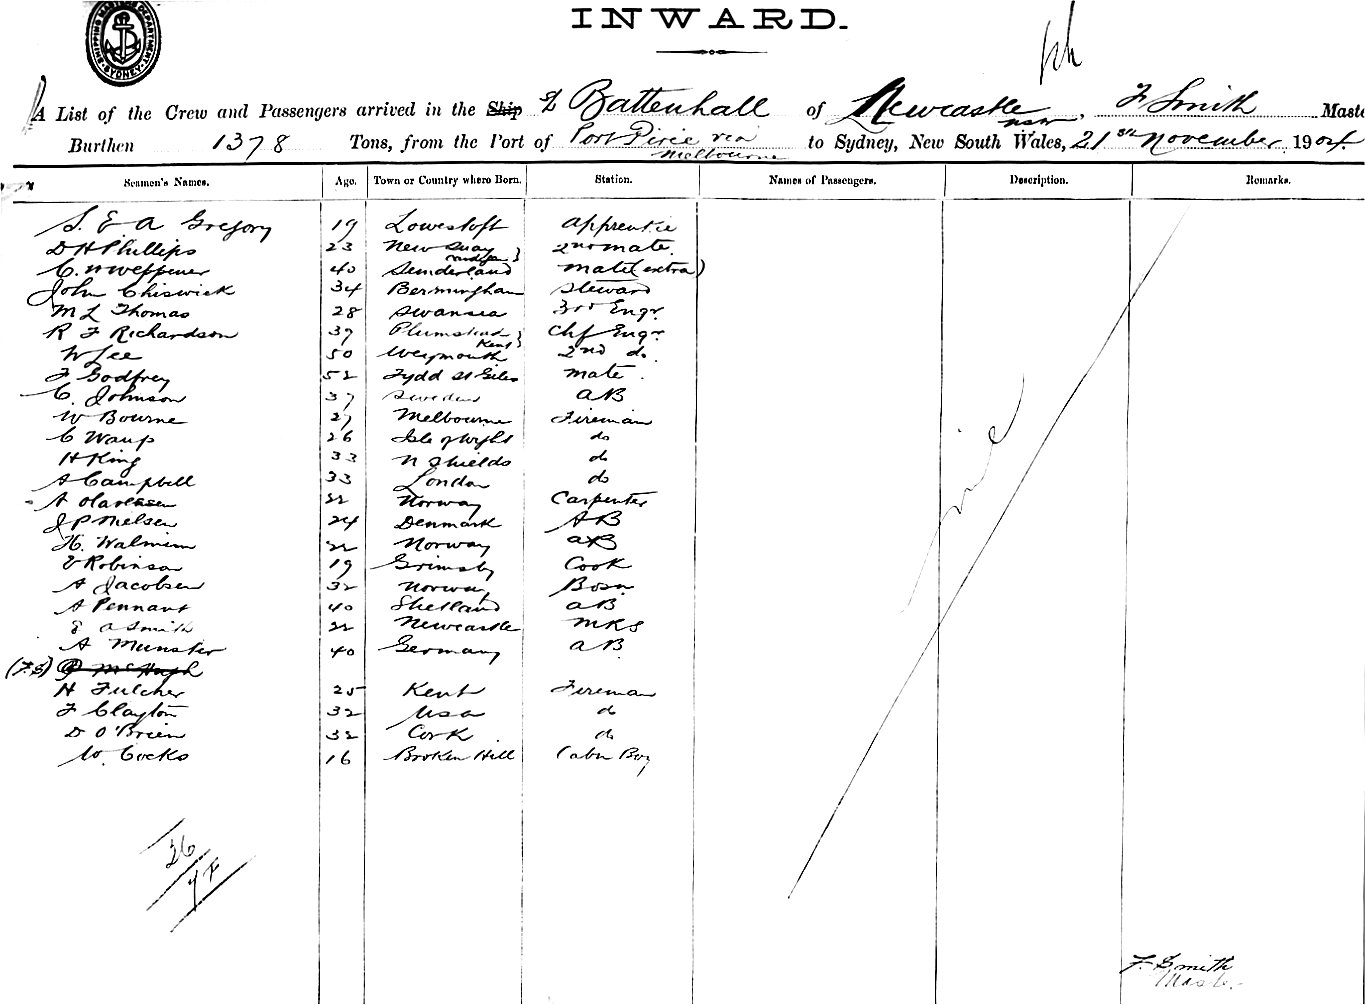 SHIPPING MASTER'S DEPARTMENT SYDNEY
INWARD.
A List of the Crew and Passengers arrived in the Ship Battenhall of Newcastle NSW, F Smith Maste
Burthen 1378 Tons, from the Port of Port Pirie via Melbourne to Sydney, New South Wales, 21st November 1904
Seamen's Names. Age. Town or Country where Born. Station. Names of Passengers. Description. Remarks.
S. E A Gregory 19 Lowestoft apprentice
D H Phillips 23 New Quay 2nd mate
C. 40 Sunderland mate (extra)
John Chiswick 34 Bermingham Steward
M L Thomas 28 Swansea 3rd Engr
R F Richardson 39 Plumstead Kent Chf Engr
W Lee 50 Weymouth 2nd do.
F Godfrey 52 Tydd St Giles mate.
C. Johnson 37 Sweden AB
W Bourne 27 Melbourne Fireman
C Waup 26 Isle of Wyht do
H King 33 N Shields do
A Campbell 33 London do
A Olavesen 22 Norway Carpenter
J P Nielsen 24 Denmark AB
H. Walmim 22 Norway AB
E Robinson 19 Grimsby Cook
A Jacobsen 32 Norway Bosn
A Pennant 40 Shetland AB
E A Smith 22 Newcastle MRS
A Munster 40 Germany AB
(F.S) McHugh
H Fulcher 25 Kent Fireman
F Clayton 32 USA do
D O'Brien 32 Cork do
W. Cocks 16 Broken Hill Cabn Boy
26
F. Smith
Master